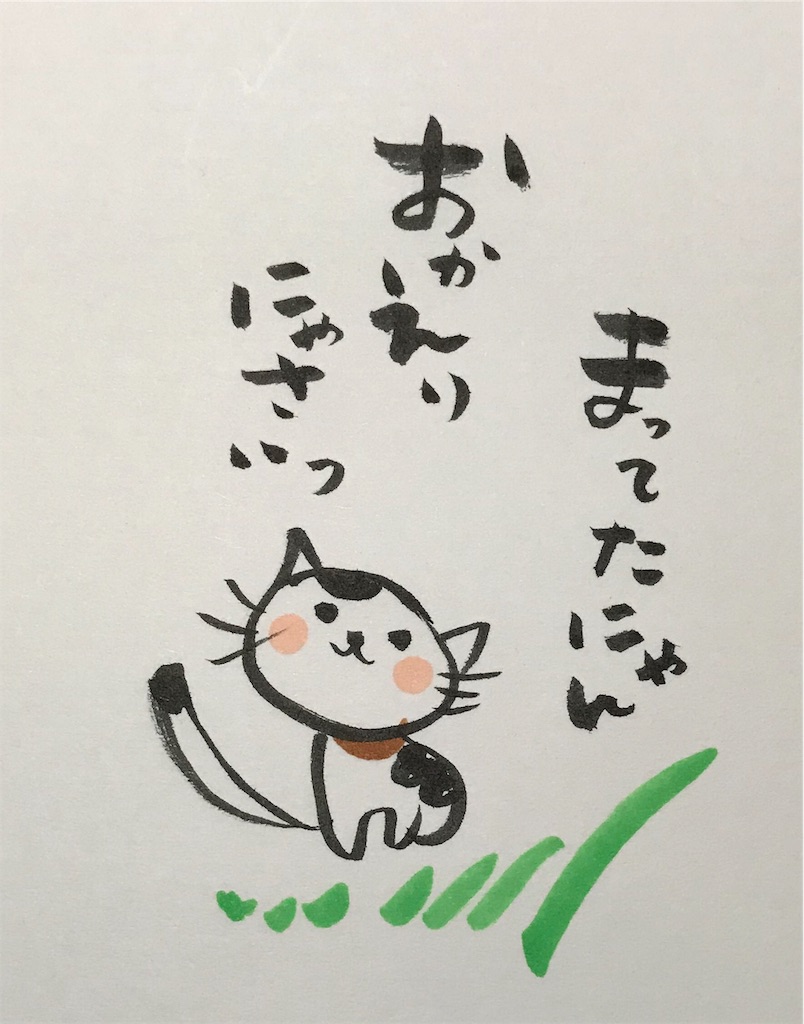 まってたにゃん
おかえり
にゃさいっ